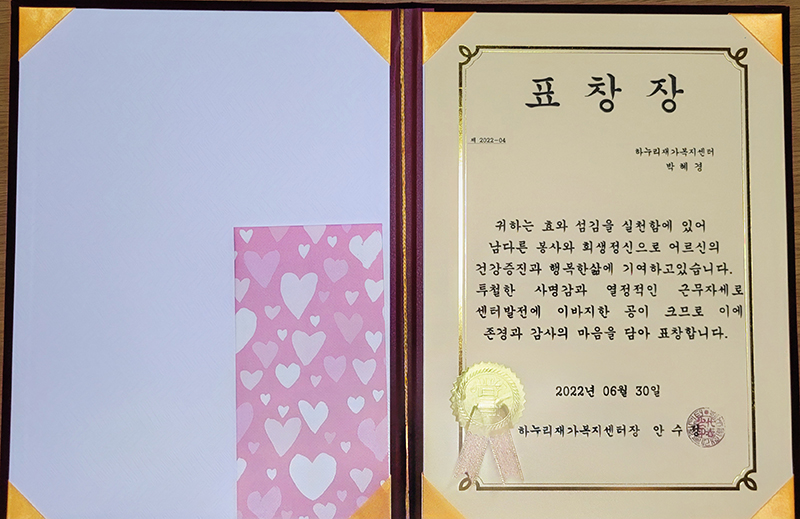 표창장
제 2022-04
하누리재가복지센터
박혜경
귀하는 효와 섬김을 실천함에 있어
남다른 봉사와 희생정신으로 어르신의
건강증진과 행복한삶에 기여하고있습니다.
투철한 사명감과 열정적인 근무자세로
센터발전에 이바지한 공이 크므로 이에
존경과 감사의 마음을 담아 표창합니다.
2022년 06월 30일
하누리재가복지센터장 안 수